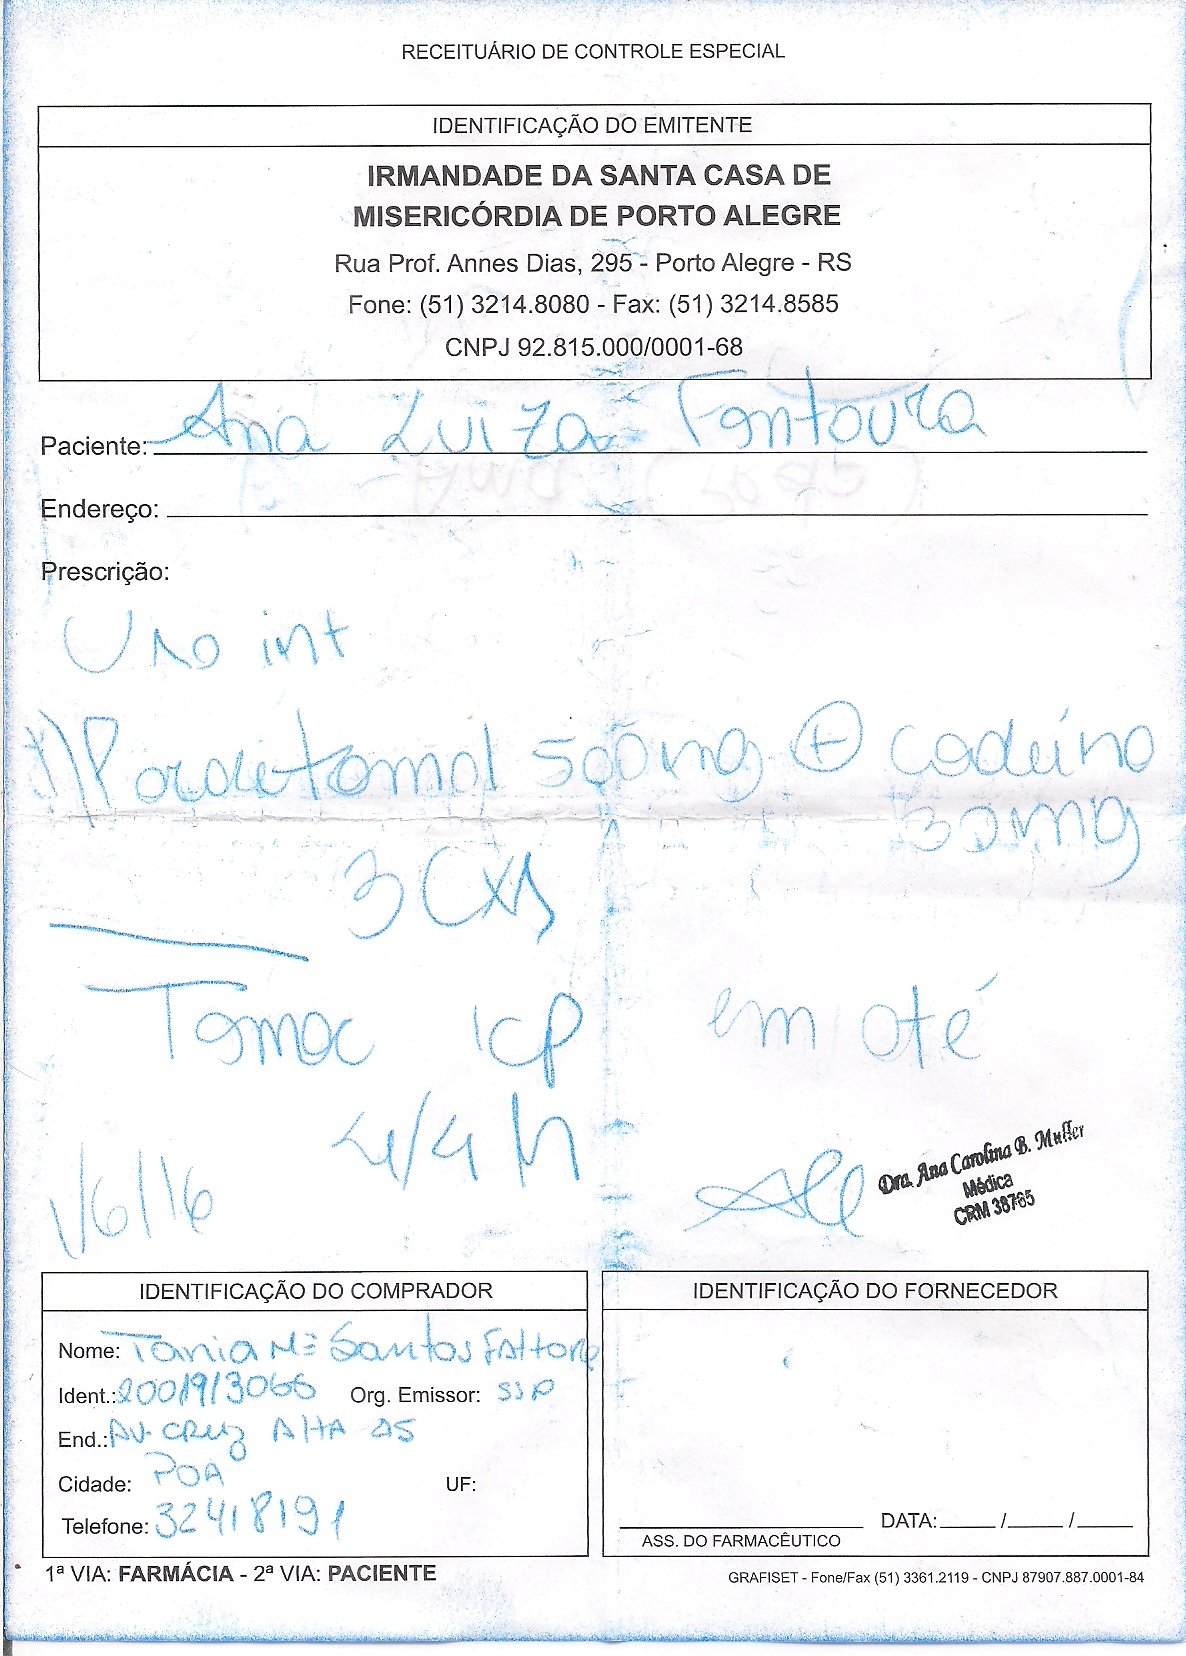 RECEITUÁRIO DE CONTROLE ESPECIAL
IDENTIFICAÇÃO DO EMITENTE
IRMANDADE DA SANTA CASA DE
MISERICÓRDIA DE PORTO ALEGRE
Rua Prof. Annes Dias, 295 - Porto Alegre - RS
Fone: (51) 3214.8080 - Fax: (51) 3214.8585
CNPJ 92.815.000/0001-68
Paciente: Ana Luiza Fontoura
Endereço:
Prescrição:
Uso int
1) Paracetamol 500mg + codeína
30mg
3 cxs
Tomar 1cp em até
4/4 h
1/6/16
Dra. Ana Carolina B. Muller
Médica
CRM 38765
IDENTIFICAÇÃO DO COMPRADOR
Nome: Tania Mª Santos
Ident.: 2001913066 Org. Emissor: SSP
End.: AV. CRUZ ALTA
Cidade: POA UF:
Telefone: 32418191
IDENTIFICAÇÃO DO FORNECEDOR
DATA: / /
ASS. DO FARMACÊUTICO
1ª VIA: FARMÁCIA - 2ª VIA: PACIENTE
GRAFISET - Fone/Fax (51) 3361.2119 - CNPJ 87907.887.0001-84